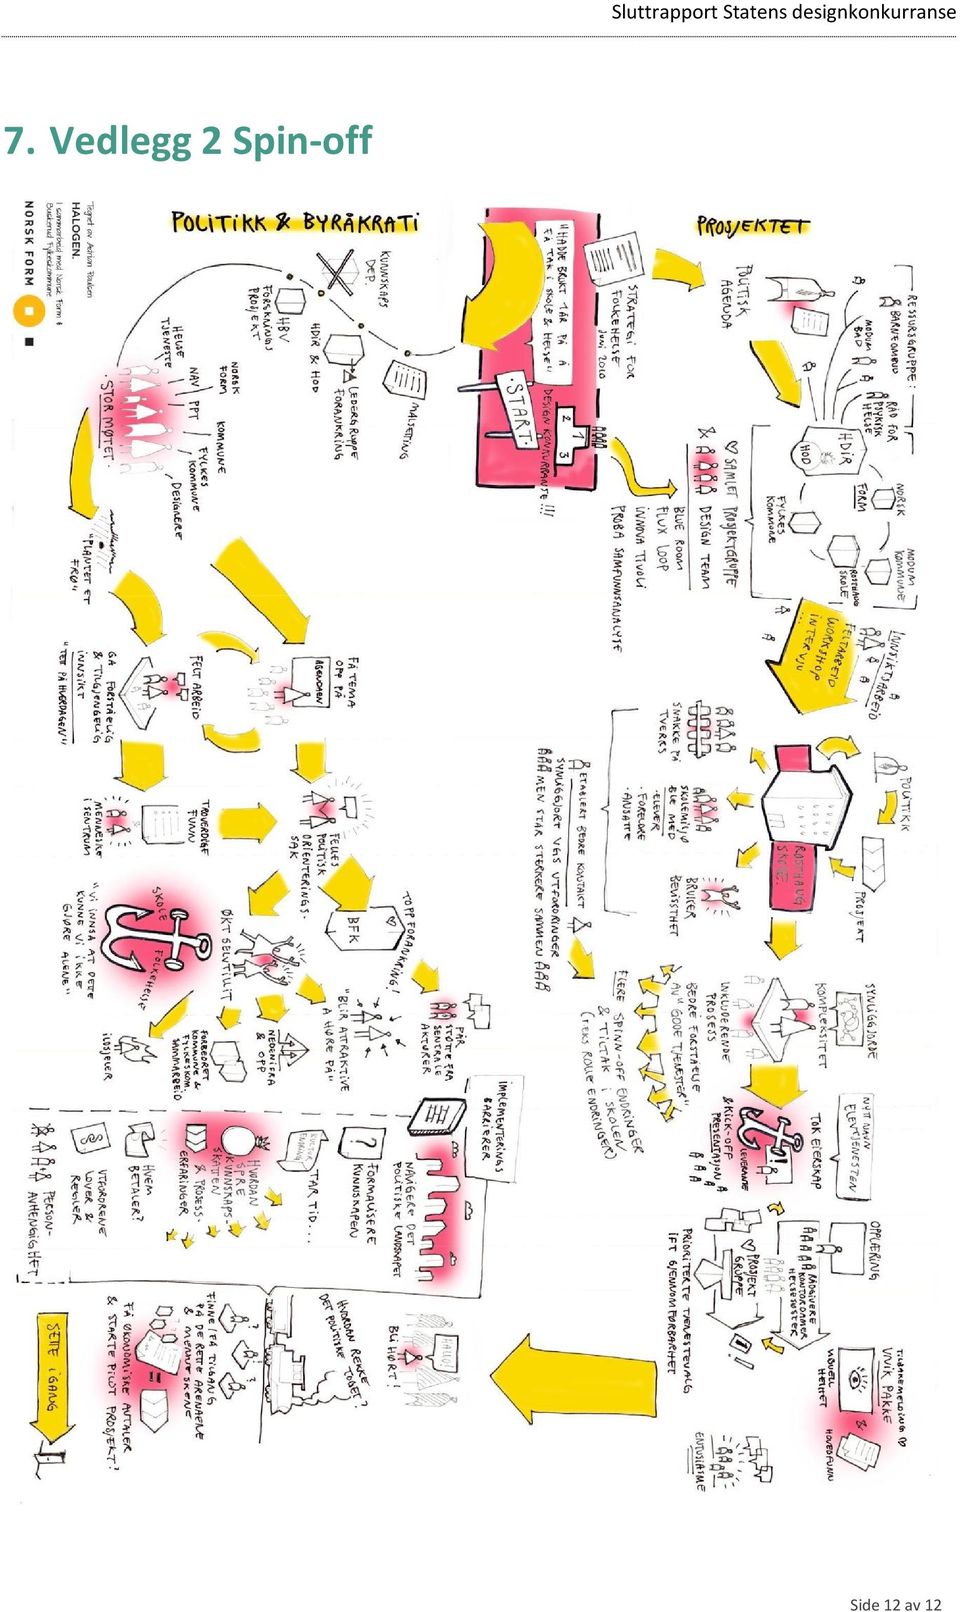 Sluttrapport Statens designkonkurranse
7. Vedlegg 2 Spin-off
PROSJEKTET
POLITISK
AGENDA
RESSURSGRUPPE:
BARNEOMBUD
MODUM
BAD
RÅD FOR
PSYKISK
HELSE
HDIR
HOD
NORSK
FORM
MODUM
KOMMUNE
ROSTHAUG
SKOLE
FYLKES
KOMMUNE
♡ SAMLET PROSJEKTGRUPPE
& DESIGN TEAM
BLUE ROOM
FLUX LOOP
INNOVA TIVOLI
PROBA SAMFUNNSANALYSE
INNSIKTSARBEID
FELTARBEID
WORKSHOP
INTERVJU
POLITIKK
PROSJEKT
ROSTHAUG
SKOLE
SNAKKE PÅ
TVERRS
SKOLEMILJØ
BLE MED
- ELEVER
- FORELDRE
- ANSATTE
BRUKER
BEVISSTHET
ETABLERT BEDRE KONTAKT
SYNLIGGJORT VGS UTFORDRINGER
MEN STÅR STERKERE SAMMEN
SYNLIGGJORDE
KOMPLEKSITET
INKLUDERENDE
PROSESS
BEDRE FORSTÅELSE
AV "GODE TJENESTER"
FLERE SPINN-OFF ENDRINGER
& TILTAK I SKOLEN
(F.EKS ROLLE ENDRINGER)
NYTT NAVN
ELEVTJENESTEN
TOK EIERSKAP
LEVERANSE
& KICK-OFF
PRESENTASJON
OPPLÆRING
RÅDGIVERE
KONTORDAMMER
HELSESØSTER
♡ PROSJEKT
GRUPPE
PRIORITERTE TJENESTEVALG
IFT GJENNOMFØRBARHET
TILBAKEMELDING ♡
UNIK PAKKE
VISUELL
HELHET
&
HOVEDFUNN
ENTUSIASME
STRATEGI FOR
FOLKEHELSE
Juni 2010
"HADDE BRUKT 1 ÅR PÅ Å
FÅ TAK I SKOLE & HELSE"
2 1 3
DESIGN KONKURRANSE!!!
START.
POLITIKK & BYRÅKRATI
KUNNSKAPS
DEP.
HDIR & HOD
HBV
FORSKNINGS
PROSJEKT
LEDERGRUPPE
FORANKRING
MÅLSETTING
HELSE
TJENESTE
NAV
PPT
NORSK
FORM
KOMMUNE
FYLKES
KOMMUNE
DESIGNERE
. STOR MØTET.
"PLANTET ET
FRØ"
FÅ TEMA
OPP PÅ
AGENDAEN
FELT ARBEID
GA FORSTÅELIG
& TILGJENGELIG
INNSIKT
"TETT PÅ HVERDAGEN"
FELLES
POLITISK
ORIENTERINGS-
SAK
TROVERDIGE
FUNN
MENNESKE
I SENTRUM
TOPP FORANKRING!
BFK
ØKT SELVTILLIT
SKOLE
FOLKEHELSE
"VI INNSÅ AT DETTE
KUNNE VI IKKE
GJØRE ALENE"
FÅR
STØTTE FRA
SENTRALE
AKTØRER
"BLIR ATTRAKTIVE
Å HØRE PÅ"
NEDENIFRA
& OPP
FORBEDRET
KOMMUNE &
FYLKESKOM.
SAMARBEID
ILDSJELER
IMPLEMENTERINGS
BARRIERER
NAVIGERE DET
POLITISKE LANDSKAPET
?
FORMALISERE
KUNNSKAPEN
KULTUR
ENDRING
TAR TID...
HVORDAN
SPRE
KUNNSKAPS-
SKATTEN
& PROSESS-
ERFARINGER
HVEM
BETALER?
§
UTFORDRENE
LOVER &
REGLER
PERSON-
AVHENGIGHET
HALLO!
BLI HØRT!
HVORDAN REKKE
DET POLITISKE
TOGET?
FINNE/FÅ TILGANG
PÅ DE RETTE ARENAENE
& MENNESKENE
FÅ ØKONOMISKE AVTALER
& STARTE PILOT PROSJEKT?
SETTE I GANG
Tegnet av Adrian Paulsen
HALOGEN.
I samarbeid med Norsk Form &
Buskerud Fylkeskommune
NORSK FORM
Side 12 av 12